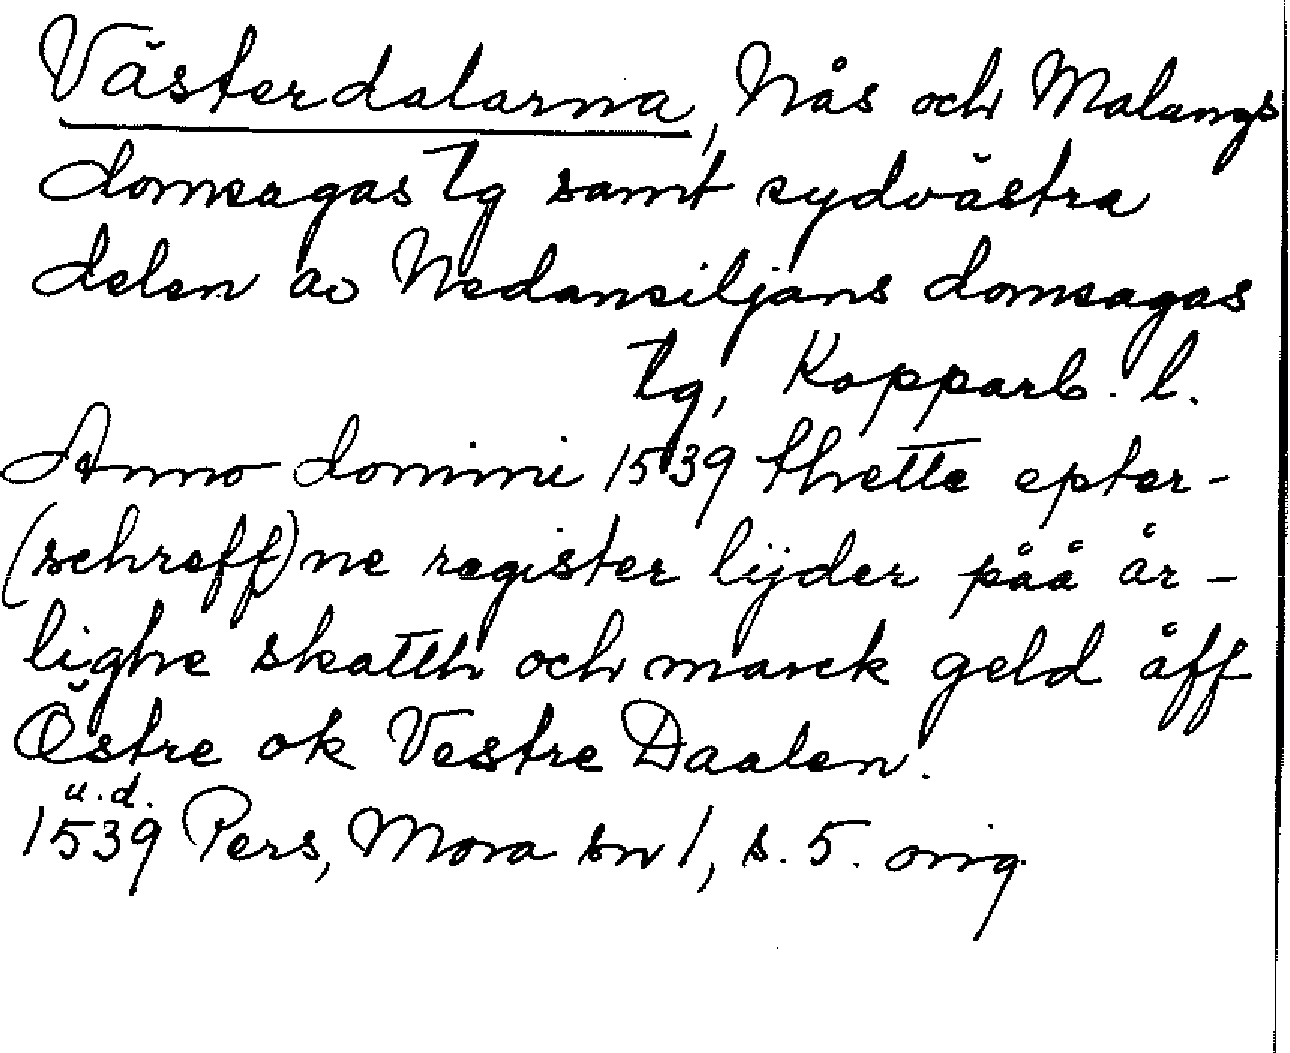 Västerdalarna, Nås och Malungs
domsagas tg samt sydvästra
delen av Nedansiljans domsagas
tg, Kopparb. l.
Anno domini 1539 thette epter-
(schreff)ne register lijder påå år-
lighe skatth och marck geld åff
Östre ok Vestre Daalen.
u.d.
1539 Pers, Mora sn 1, s. 5. orig